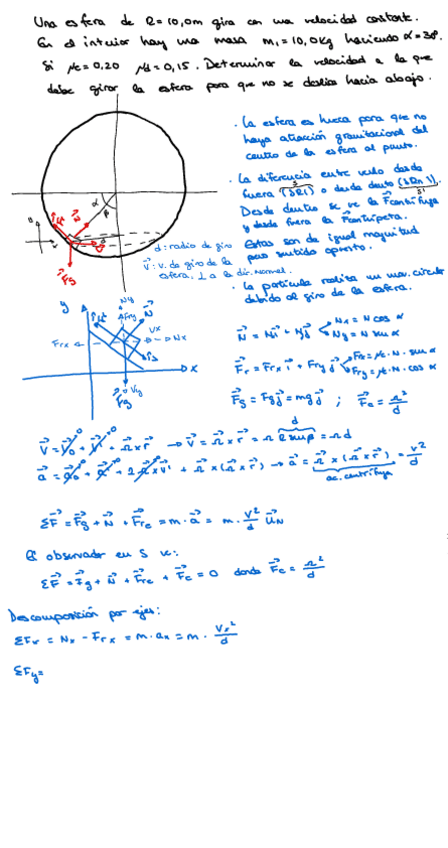 Una esfera de R=10,0m gira con una velocidad constante.
En el interior hay una masa m₁=10,0Kg haciendo α=30º.
Si μe=0,20 μd=0,15. Determinar la velocidad a la que
debe girar la esfera para que no se deslice hacia abajo.
· La esfera es hueca para que no
haya atracción gravitacional del
centro de la esfera al punto.
· La diferencia entre verlo desde
fuera (SRI) o desde dentro (SRn I).
Desde dentro se ve la Fcentrífuga
y desde fuera la Fcentrípeta.
Estas son de igual magnitud
pero sentido opuesto.
· La partícula realiza un mov. circular
debido al giro de la esfera.
d: radio de giro
V: v. de giro de la
esfera, ⊥ a la dir. normal.
N⃗ = Nx i + Ny j Nx = N cos α
Ny = N sin α
F⃗r = Frx i⃗ + Fry j⃗ Frx = μ·N·sin α
Fry = μ·N·cos α
F⃗g = Fg j⃗ = mg j⃗ ; F⃗c = Ω²/d
V⃗ = V⃗₀ + V⃗' + Ω⃗ x r⃗ → V⃗ = Ω⃗ x r⃗ = Ω R sin β = Ω d
a⃗ = a⃗₀ + a⃗' + 2Ω⃗ x V⃗' + Ω⃗ x (Ω⃗ x r⃗) → a⃗ = Ω⃗ x (Ω⃗ x r⃗) = V²/d
ac. centrífuga
ΣF⃗ = F⃗g + N⃗ + F⃗re = m·a⃗ = m·V²/d u⃗N
El observador en S ve:
ΣF⃗ = F⃗g + N⃗ + F⃗re + F⃗c = 0 donde F⃗c = Ω²/d
Descomposición por ejes:
ΣFx = Nx - Frx = m·ax = m·Vx²/d
ΣFy=